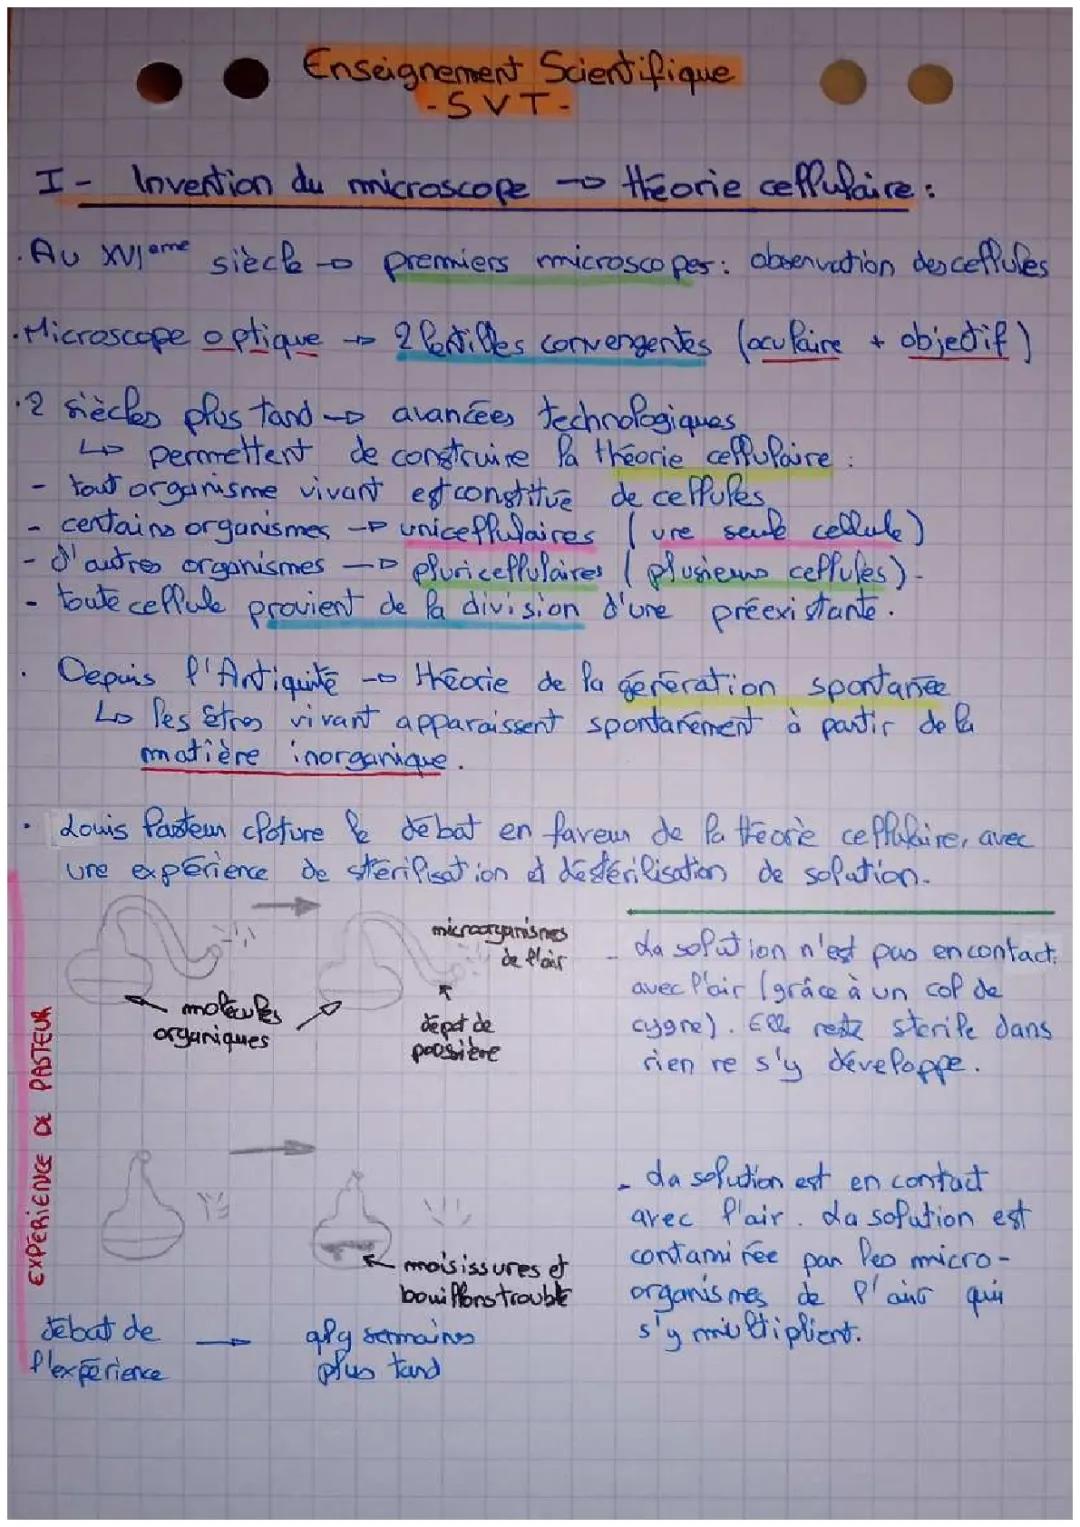 Enseignement Scientifique
- SVT -
I - Invention du microscope → théorie cellulaire :
. Au XVIeme siècle → premiers microscopes : observation des cellules
. Microscope optique → 2 lentilles convergentes (oculaire + objectif)
. 2 siècles plus tard → avancées technologiques
↳ permettent de construire la théorie cellulaire :
- tout organisme vivant est constitué de cellules
- certains organismes → unicellulaires (une seule cellule)
- d'autres organismes → pluricellulaires (plusieurs cellules) -
- toute cellule provient de la division d'une préexistante.
. Depuis l'Antiquité → théorie de la génération spontanée
↳ les êtres vivant apparaissent spontanément à partir de la
matière inorganique.
. Louis Pasteur cloture le débat en faveur de la théorie cellulaire, avec
une expérience de stérilisation et déstérilisation de solution.
EXPÉRIENCE DE PASTEUR
microorganismes
de l'air
molécules
organiques
dépot de
poussière
- La solution n'est pas en contact
avec l'air (grâce à un col de
cygne). Elle reste stérile dans
rien ne s'y développe.
moisissures et
bouillons trouble
- La solution est en contact
avec l'air. La solution est
contaminée par les micro-
organismes de l'air qui
s'y multiplient.
débat de → qlq semaines
l'expérience plus tard